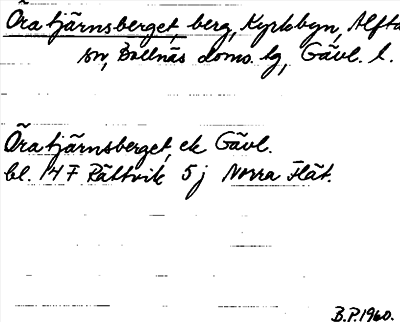 Öratjärnsberget, berg, Kyrkobyn, Alfta
sn, Bollnäs doms. lg, Gävl. l.
Öratjärnsberget, ek Gävl.
bl. 14 F Rättvik 5 j Norra Flät.
B.P. 1960.